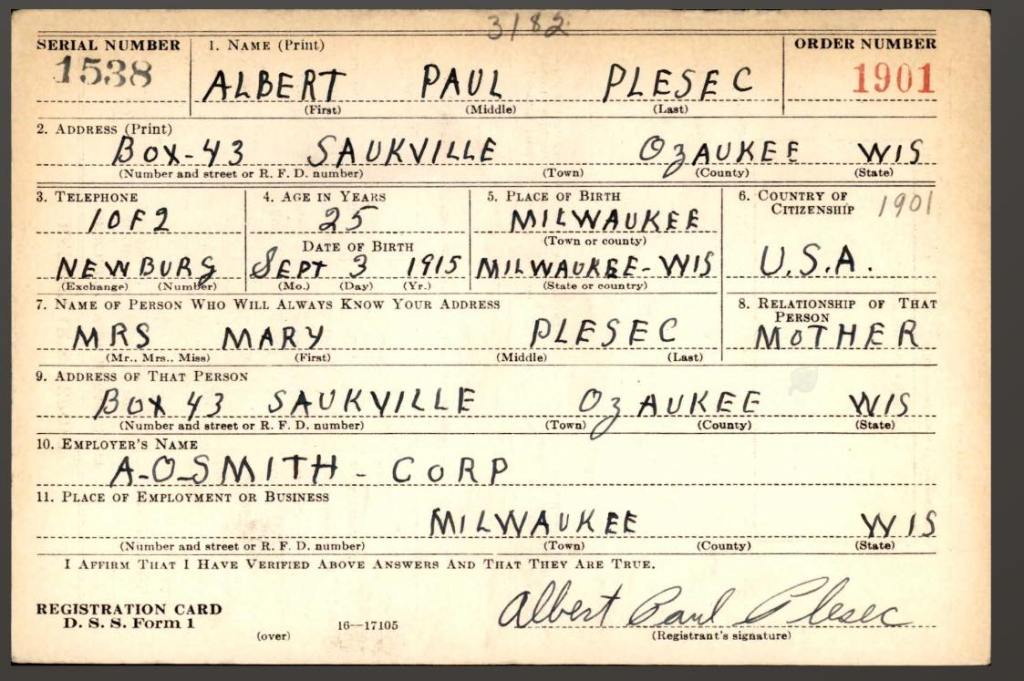 3182
SERIAL NUMBER 1. NAME (Print) ORDER NUMBER
1538 ALBERT PAUL PLESEC 1901
(First) (Middle) (Last)
2. ADDRESS (Print)
BOX-43 SAUKVILLE OZAUKEE WIS
(Number and street or R. F. D. number) (Town) (County) (State)
3. TELEPHONE 4. AGE IN YEARS 5. PLACE OF BIRTH 6. COUNTRY OF CITIZENSHIP 1901
10F2 25 MILWAUKEE
DATE OF BIRTH (Town or county)
NEWBURG SEPT 3 1915 MILWAUKEE-WIS U.S.A.
(Exchange) (Number) (Mo.) (Day) (Yr.) (State or country)
7. NAME OF PERSON WHO WILL ALWAYS KNOW YOUR ADDRESS 8. RELATIONSHIP OF THAT PERSON
MRS MARY PLESEC MOTHER
(Mr., Mrs., Miss) (First) (Middle) (Last)
9. ADDRESS OF THAT PERSON
BOX 43 SAUKVILLE OZAUKEE WIS
(Number and street or R. F. D. number) (Town) (County) (State)
10. EMPLOYER'S NAME
A-O-SMITH - CORP
11. PLACE OF EMPLOYMENT OR BUSINESS
MILWAUKEE WIS
(Number and street or R. F. D. number) (Town) (County) (State)
I AFFIRM THAT I HAVE VERIFIED ABOVE ANSWERS AND THAT THEY ARE TRUE.
REGISTRATION CARD Albert Paul Plesec
D. S. S. Form 1 (over) 16—17105 (Registrant's signature)